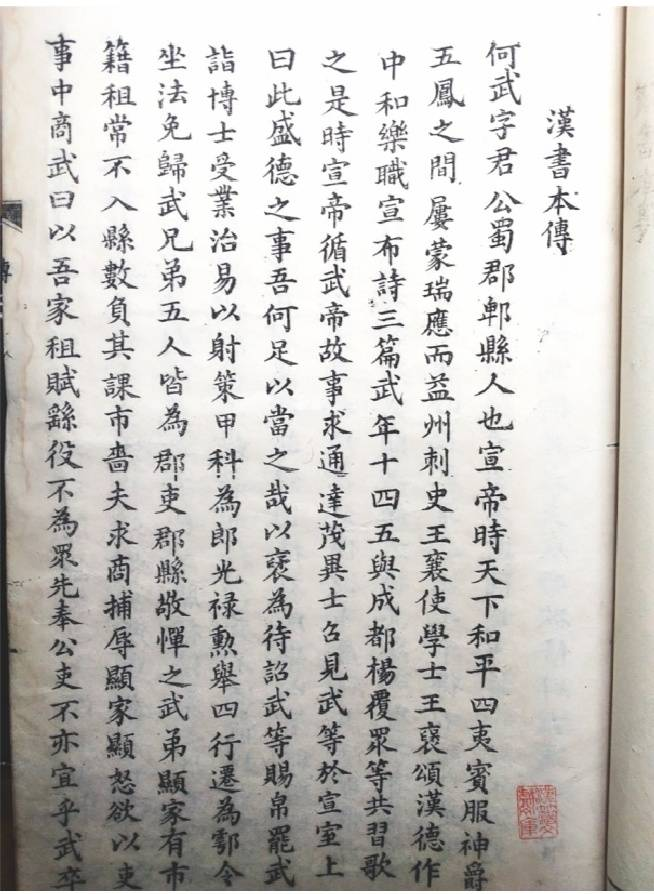 漢書本傳
何武字君公蜀郡郫縣人也宣帝時天下和平四夷賓服神爵
五鳳之間屢蒙瑞應而益州刺史王襄使學士王襃頌漢德作
中和樂職宣布詩三篇武年十四五與成都楊覆眾等共習歌
之是時宣帝循武帝故事求通達茂異士召見武等於宣室上
曰此盛德之事吾何足以當之哉以襃為待詔武等賜帛罷武
詣博士受業治易以射策甲科為郎光禄勲舉四行遷為鄠令
坐法免歸武兄弟五人皆為郡吏郡縣敬憚之武弟顯家有市
籍租常不入縣數負其課市嗇夫求商捕辱顯家顯怒欲以吏
事中商武曰以吾家租賦繇役不為眾先奉公吏不亦宜乎武卒